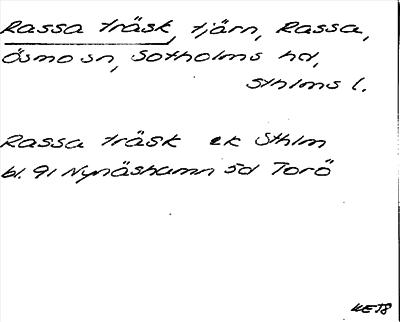 Rassa träsk, tjärn, Rassa,
Ösmo sn, Sotholms hd,
Sthlms l.
Rassa träsk ek Sthlm
bl. 91 Nynäshamn 5d Torö